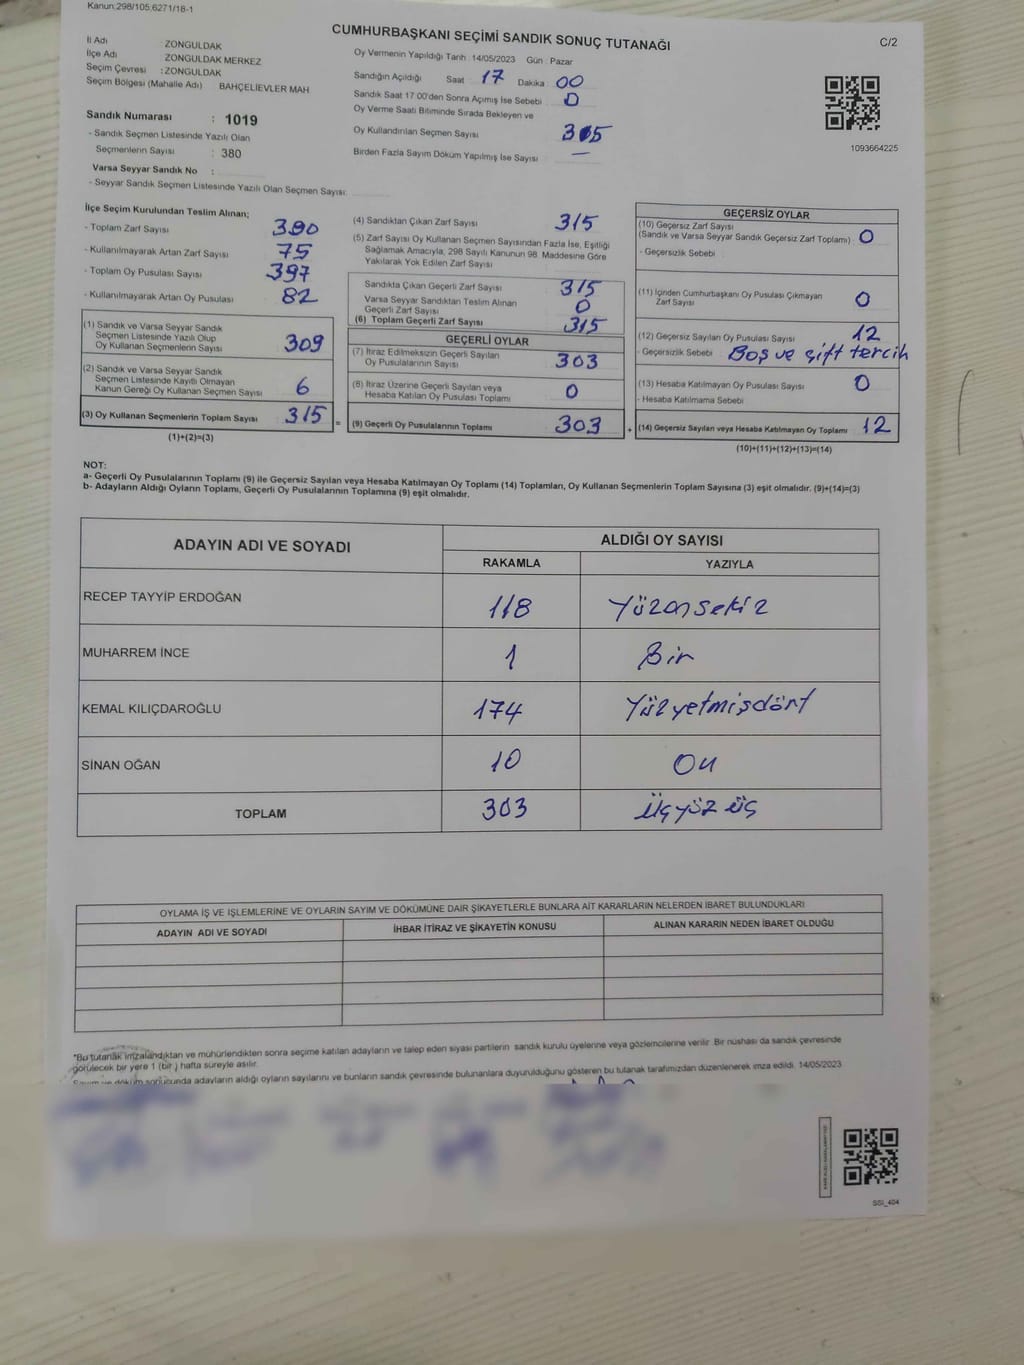 Kanun:298/105,6271/18-1
CUMHURBAŞKANI SEÇİMİ SANDIK SONUÇ TUTANAĞI
C/2
İl Adı : ZONGULDAK
İlçe Adı ZONGULDAK MERKEZ
Seçim Çevresi : ZONGULDAK
Seçim Bölgesi (Mahalle Adı) BAHÇELİEVLER MAH
Sandık Numarası : 1019
- Sandık Seçmen Listesinde Yazılı Olan
Seçmenlerin Sayısı : 380
Varsa Seyyar Sandık No :
- Seyyar Sandık Seçmen Listesinde Yazılı Olan Seçmen Sayısı:
Oy Vermenin Yapıldığı Tarih : 14/05/2023 Gün : Pazar
Sandığın Açıldığı Saat 17 Dakika 00
Sandık Saat 17:00'den Sonra Açımış İse Sebebi 0
Oy Verme Saati Bitiminde Sırada Bekleyen ve
Oy Kullandırılan Seçmen Sayısı 315
Birden Fazla Sayım Döküm Yapılmış İse Sayısı : —
1093664225
İlçe Seçim Kurulundan Teslim Alınan;
- Toplam Zarf Sayısı 390
- Kullanılmayarak Artan Zarf Sayısı 75
- Toplam Oy Pusulası Sayısı 397
- Kullanılmayarak Artan Oy Pusulası 82
(1) Sandık ve Varsa Seyyar Sandık
Seçmen Listesinde Yazılı Olup
Oy Kullanan Seçmenlerin Sayısı 309
(2) Sandık ve Varsa Seyyar Sandık
Seçmen Listesinde Kayıtlı Olmayan
Kanun Gereği Oy Kullanan Seçmen Sayısı 6
(3) Oy Kullanan Seçmenlerin Toplam Sayısı 315
(1)+(2)=(3)
=
(4) Sandıktan Çıkan Zarf Sayısı 315
(5) Zarf Sayısı Oy Kullanan Seçmen Sayısından Fazla İse, Eşitliği
Sağlamak Amacıyla, 298 Sayılı Kanunun 98. Maddesine Göre
Yakılarak Yok Edilen Zarf Sayısı
Sandıkta Çıkan Geçerli Zarf Sayısı 315
Varsa Seyyar Sandıktan Teslim Alınan
Geçerli Zarf Sayısı 0
(6) Toplam Geçerli Zarf Sayısı 315
GEÇERLİ OYLAR
(7) İtiraz Edilmeksizin Geçerli Sayılan
Oy Pusulalarının Sayısı 303
(8) İtiraz Üzerine Geçerli Sayılan veya
Hesaba Katılan Oy Pusulası Toplamı 0
(9) Geçerli Oy Pusulalarının Toplamı 303
+
GEÇERSİZ OYLAR
(10) Geçersiz Zarf Sayısı
(Sandık ve Varsa Seyyar Sandık Geçersiz Zarf Toplamı) 0
- Geçersizlik Sebebi :
(11) İçinden Cumhurbaşkanı Oy Pusulası Çıkmayan
Zarf Sayısı 0
(12) Geçersiz Sayılan Oy Pusulası Sayısı 12
- Geçersizlik Sebebi : Boş ve çift tercih
(13) Hesaba Katılmayan Oy Pusulası Sayısı 0
- Hesaba Katılmama Sebebi
(14) Geçersiz Sayılan veya Hesaba Katılmayan Oy Toplamı 12
(10)+(11)+(12)+(13)=(14)
NOT:
a- Geçerli Oy Pusulalarının Toplamı (9) ile Geçersiz Sayılan veya Hesaba Katılmayan Oy Toplamı (14) Toplamları, Oy Kullanan Seçmenlerin Toplam Sayısına (3) eşit olmalıdır. (9)+(14)=(3)
b- Adayların Aldığı Oyların Toplamı, Geçerli Oy Pusulalarının Toplamına (9) eşit olmalıdır.
ADAYIN ADI VE SOYADI ALDIĞI OY SAYISI
RAKAMLA YAZIYLA
RECEP TAYYİP ERDOĞAN 118 Yüzonsekiz
MUHARREM İNCE 1 Bir
KEMAL KILIÇDAROĞLU 174 Yüzyetmişdört
SİNAN OĞAN 10 On
TOPLAM 303 üçyüz üç
OYLAMA İŞ VE İŞLEMLERİNE VE OYLARIN SAYIM VE DÖKÜMÜNE DAİR ŞİKAYETLERLE BUNLARA AİT KARARLARIN NELERDEN İBARET BULUNDUKLARI
ADAYIN ADI VE SOYADI İHBAR İTİRAZ VE ŞİKAYETİN KONUSU ALINAN KARARIN NEDEN İBARET OLDUĞU
*Bu tutanak imzalandıktan ve mühürlendikten sonra seçime katılan adayların ve talep eden siyasi partilerin sandık kurulu üyelerine veya gözlemcilerine verilir. Bir nüshası da sandık çevresinde
görülecek bir yere 1 (bir) hafta süreyle asılır.
Sayım ve döküm sonucunda adayların aldığı oyların sayılarını ve bunların sandık çevresinde bulunanlara duyurulduğunu gösteren bu tutanak tarafımızdan düzenlenerek imza edildi. 14/05/2023
SSI_404